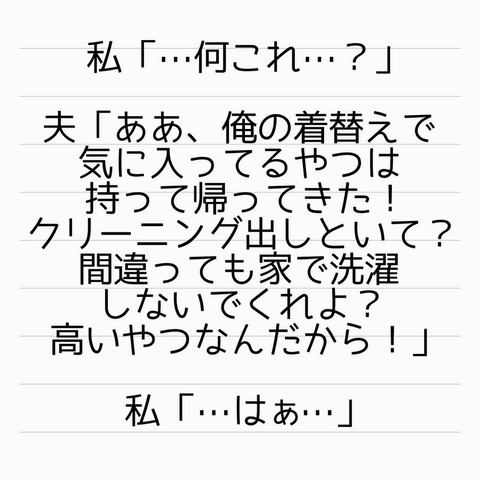 私「…何これ…？」
夫「ああ、俺の着替えで
気に入ってるやつは
持って帰ってきた！
クリーニング出しといて？
間違っても家で洗濯
しないでくれよ？
高いやつなんだから！」
私「…はぁ…」